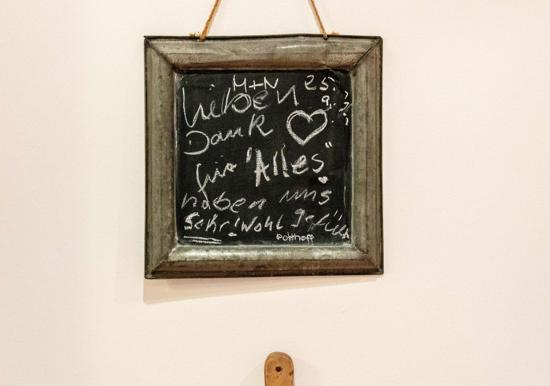 M+N
Lieben
Dank
für "Alles"
haben uns
Sehr! Wohl gefühlt
Potthoff